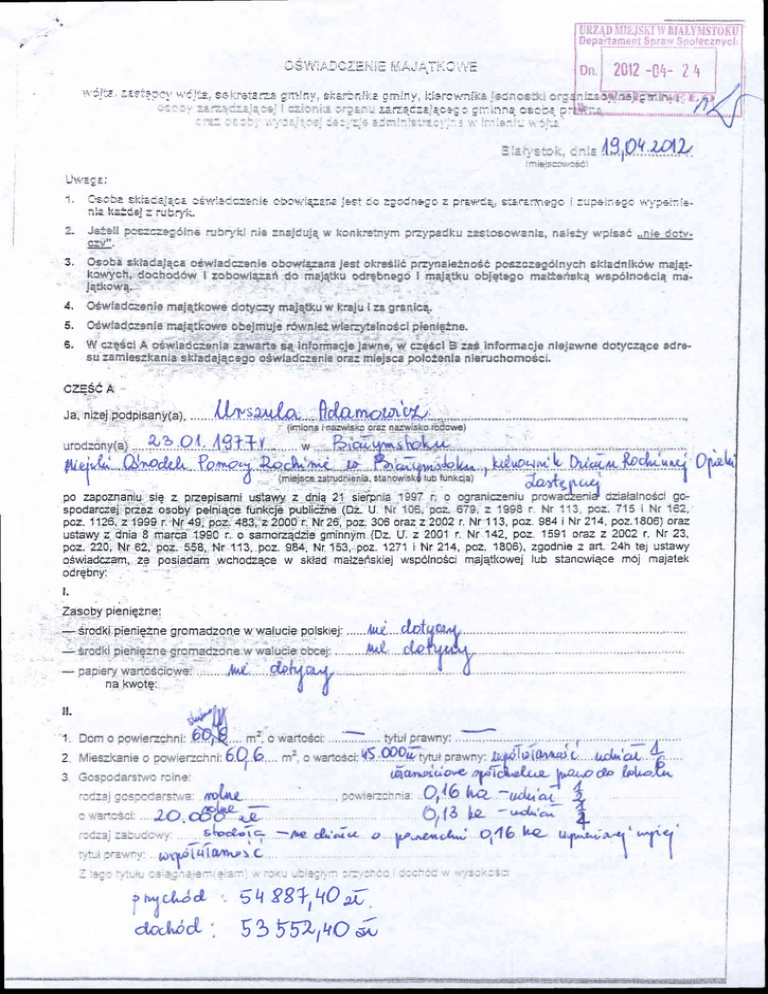 URZĄD MIEJSKI W BIAŁYMSTOKU
Departament Spraw Społecznych
Dn. 2012 -04- 2 4
OŚWIADCZENIE MAJĄTKOWE
wójta, zastępcy wójta, sekretarza gminy, skarbnika gminy, kierownika jednostki organizacyjnej gminy,
osoby zarządzającej i członka organu zarządzającego gminną osobą prawną
oraz osoby wydającej decyzje administracyjne w imieniu wójta
Białystok, dnia 19.04.2012
(miejscowość)
Uwaga:
1. Osoba składająca oświadczenie obowiązana jest do zgodnego z prawdą, starannego i zupełnego wypełnie-
nia każdej z rubryk.
2. Jeżeli poszczególne rubryki nie znajdują w konkretnym przypadku zastosowania, należy wpisać „nie doty-
czy".
3. Osoba składająca oświadczenie obowiązana jest określić przynależność poszczególnych składników mająt-
kowych, dochodów i zobowiązań do majątku odrębnego i majątku objętego małżeńską wspólnością ma-
jątkową.
4. Oświadczenie majątkowe dotyczy majątku w kraju i za granicą.
5. Oświadczenie majątkowe obejmuje również wierzytelności pieniężne.
6. W części A oświadczenia zawarte są informacje jawne, w części B zaś informacje niejawne dotyczące adre-
su zamieszkania składającego oświadczenie oraz miejsca położenia nieruchomości.
CZĘŚĆ A
Ja, niżej podpisany(a), Urszula Adamowicz
(imiona i nazwisko oraz nazwisko rodowe)
urodzony(a) 23.01.1977r w Białymstoku
Miejski Ośrodek Pomocy Rodzinie w Białymstoku, kierownik Działu Rodzinnej Opieki
(miejsce zatrudnienia, stanowisko lub funkcja)
Zastępczej
po zapoznaniu się z przepisami ustawy z dnia 21 sierpnia 1997 r. o ograniczeniu prowadzenia działalności go-
spodarczej przez osoby pełniące funkcje publiczne (Dz. U. Nr 106, poz. 679, z 1998 r. Nr 113, poz. 715 i Nr 162,
poz. 1126, z 1999 r. Nr 49, poz. 483, z 2000 r. Nr 26, poz. 306 oraz z 2002 r. Nr 113, poz. 984 i Nr 214, poz.1806) oraz
ustawy z dnia 8 marca 1990 r. o samorządzie gminnym (Dz. U. z 2001 r. Nr 142, poz. 1591 oraz z 2002 r. Nr 23,
poz. 220, Nr 62, poz. 558, Nr 113, poz. 984, Nr 153, poz. 1271 i Nr 214, poz. 1806), zgodnie z art. 24h tej ustawy
oświadczam, że posiadam wchodzące w skład małżeńskiej wspólności majątkowej lub stanowiące mój majatek
odrębny:
I.
Zasoby pieniężne:
— środki pieniężne gromadzone w walucie polskiej: nie dotyczy
— środki pieniężne gromadzone w walucie obcej: nie dotyczy
— papiery wartościowe: nie dotyczy
na kwotę:
II.
1. Dom o powierzchni: 60,6 m², o wartości: — tytuł prawny: —
2. Mieszkanie o powierzchni: 60,6 m², o wartości: 45.000zł tytuł prawny: współwłasność udział 1/6
własnościowe spółdzielcze prawo do lokalu
3. Gospodarstwo rolne:
rodzaj gospodarstwa: rolne, powierzchnia: 0,16 ha - udział 1/2
o wartości: 20.000 zł 0,13 ha - udział 1/4
rodzaj zabudowy: stodoła - na działce o powierzchni 0,16 ha wymienionej wyżej
tytuł prawny: współwłasność
Z tego tytułu osiągnąłem(ęłam) w roku ubiegłym przychód i dochód w wysokości:
przychód : 54 887,40 zł.
dochód : 53 552,40 zł